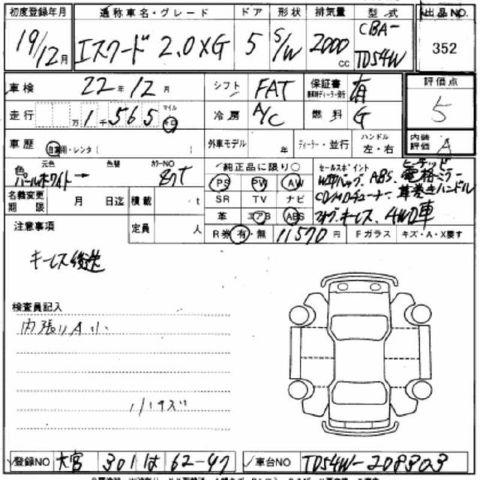 初度登録年月 通称車名・グレード ドア 形状 排気量 型式 出品NO
19/12月 エスクード 2.0XG 5 S/W 2000cc CBA-TD54W 352
車検 22年12月 シフト FAT 保証書 有 評価点
走行 万 1千565 マイル km 冷房 A/C 燃料 G 5
車歴 自家用・レンタ( ) 外車モデル 年 ディーラー・並行 ハンドル 左・右 内装評価 A
元色 色替 カラーNO 純正品に限り○ セールスポイント
色 パールホワイト→ PS PW AW W エアバッグ、ABS、電格ミラー
名義変更期限 月 日迄 積載 t SR TV ナビ CD/MDチューナー、革巻きハンドル
革 エアB ABS キーレス、4WD車
注意事項 定員 人 R券 有・無 11570円 Fガラス キズ・A・X要す
キーレス後送
検査員記入
内張りA小
登録NO 大宮 301 は 62-47 車台NO TD54W-208303